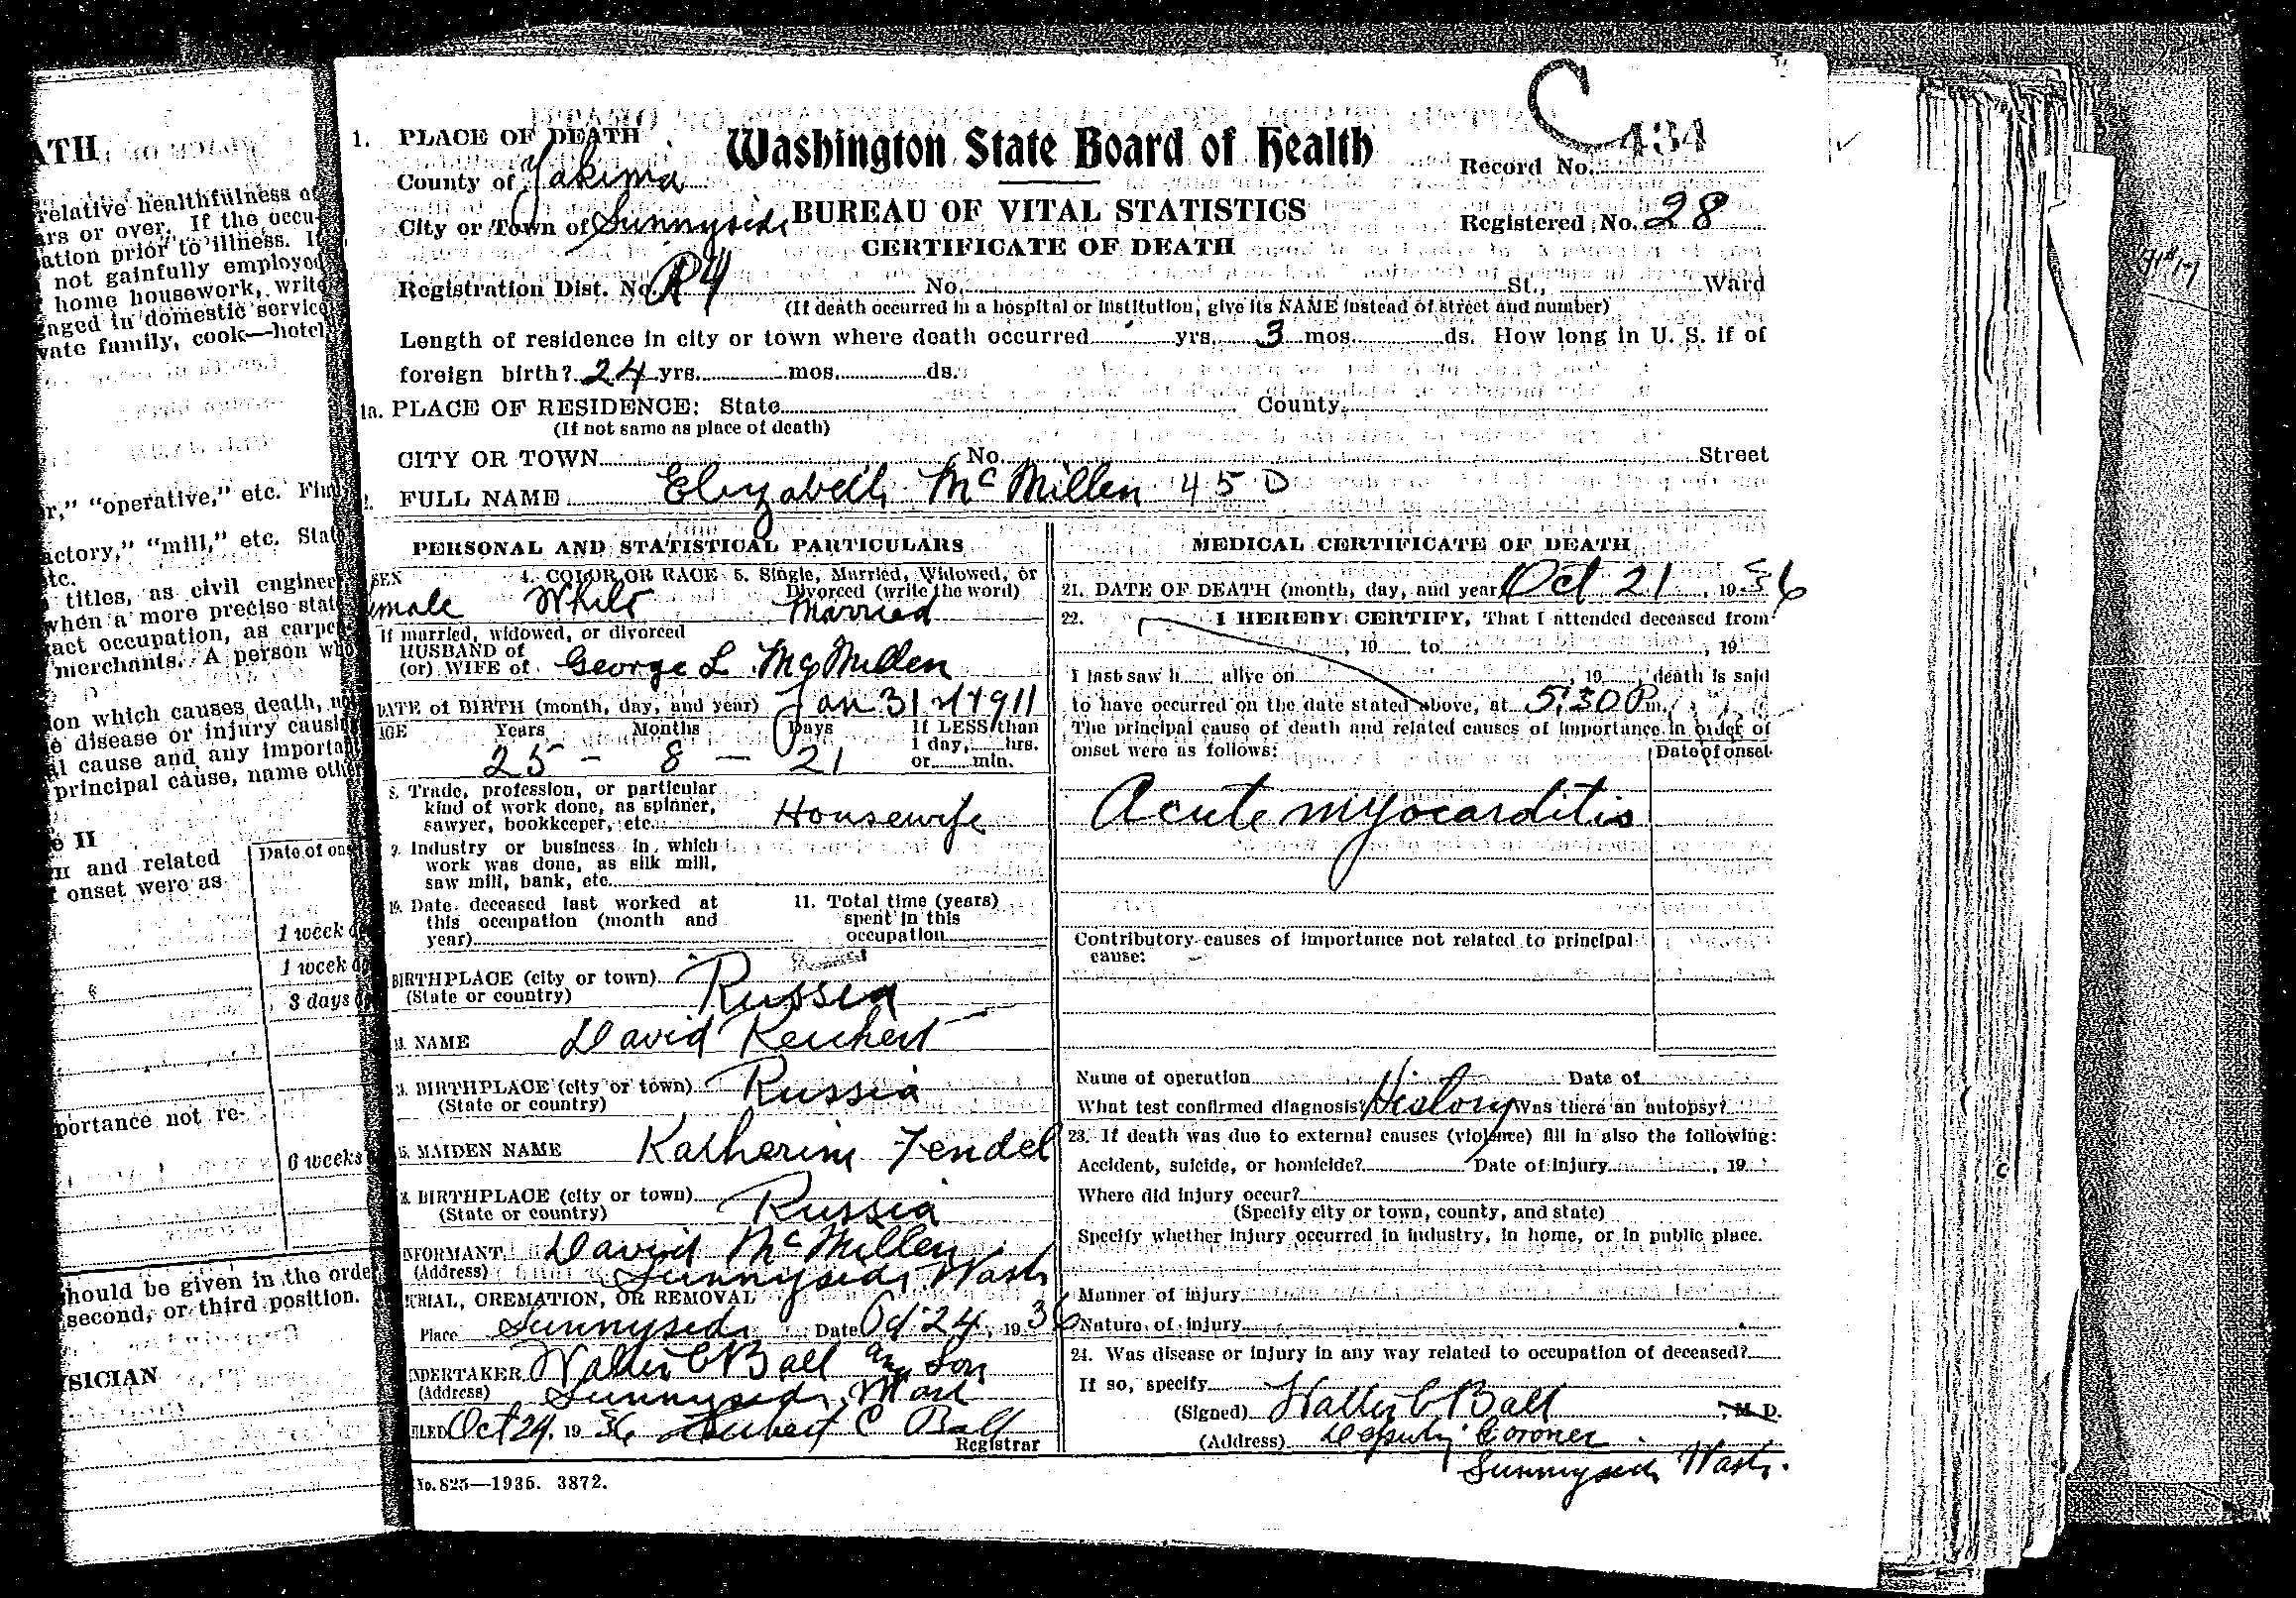 ATH
relative healthfulness of
ars or over. If the occu-
ation prior to illness. If
not gainfully employed
home housework, write
aged in domestic service
vate family, cook—hotel,
r," "operative," etc. Find
actory," "mill," etc. State
etc.
titles, as civil engineer
when a more precise stat
act occupation, as carpe
merchants. A person who
on which causes death, not
e disease or injury causing
al cause and any important
principal cause, name other
e II
and related
onset were as
Date of ons
1 week
1 week
3 days
portance not re-
6 weeks
should be given in the orde
second, or third position.
SICIAN
1. PLACE OF DEATH
Washington State Board of Health
C
434
Record No.
County of Yakima
City or Town of Sunnyside
BUREAU OF VITAL STATISTICS
Registered No. 28
CERTIFICATE OF DEATH
Registration Dist. No. R4 No. St., Ward
(If death occurred in a hospital or institution, give its NAME instead of street and number)
Length of residence in city or town where death occurred yrs. 3 mos. ds. How long in U. S. if of
foreign birth? 24 yrs. mos. ds.
1a. PLACE OF RESIDENCE: State County
(If not same as place of death)
CITY OR TOWN No. Street
2. FULL NAME Elizabeth McMillen 45 D
PERSONAL AND STATISTICAL PARTICULARS
SEX 4. COLOR OR RACE 5. Single, Married, Widowed, or
Divorced (write the word)
emale White Married
If married, widowed, or divorced
HUSBAND of
(or) WIFE of George L McMillen
DATE of BIRTH (month, day, and year) Jan 31 1911
AGE Years Months Days If LESS than
1 day, hrs.
or min.
25 - 8 - 21
8. Trade, profession, or particular
kind of work done, as spinner,
sawyer, bookkeeper, etc. Housewife
9. Industry or business in which
work was done, as silk mill,
saw mill, bank, etc.
10. Date deceased last worked at
this occupation (month and
year)
11. Total time (years)
spent in this
occupation
BIRTHPLACE (city or town)
(State or country) Russia
13. NAME David Reichert
BIRTHPLACE (city or town) Russia
(State or country)
15. MAIDEN NAME Katherine Fendel
BIRTHPLACE (city or town)
(State or country) Russia
INFORMANT David McMillen
(Address) Sunnyside Wash
BURIAL, CREMATION, OR REMOVAL
Place Sunnyside Date Oct 24, 1936
UNDERTAKER Walter C Ball and Son
(Address) Sunnyside Wash
FILED Oct 24, 1936 Hubert C Ball
Registrar
No. 825—1935. 3872.
MEDICAL CERTIFICATE OF DEATH
21. DATE OF DEATH (month, day, and year) Oct 21, 1936
22. I HEREBY CERTIFY, That I attended deceased from
, 19 to , 19
I last saw h alive on , 19 , death is said
to have occurred on the date stated above, at 5:30 P m.
The principal cause of death and related causes of importance in order of
onset were as follows:
Date of onset
Acute myocarditis
Contributory causes of importance not related to principal
cause:
Name of operation Date of
What test confirmed diagnosis? History Was there an autopsy?
23. If death was due to external causes (violence) fill in also the following:
Accident, suicide, or homicide? Date of injury , 19
Where did injury occur?
(Specify city or town, county, and state)
Specify whether injury occurred in industry, in home, or in public place.
Manner of injury
Nature of injury
24. Was disease or injury in any way related to occupation of deceased?
If so, specify
(Signed) Walter C Ball , M.D.
(Address) Deputy Coroner
Sunnyside Wash.